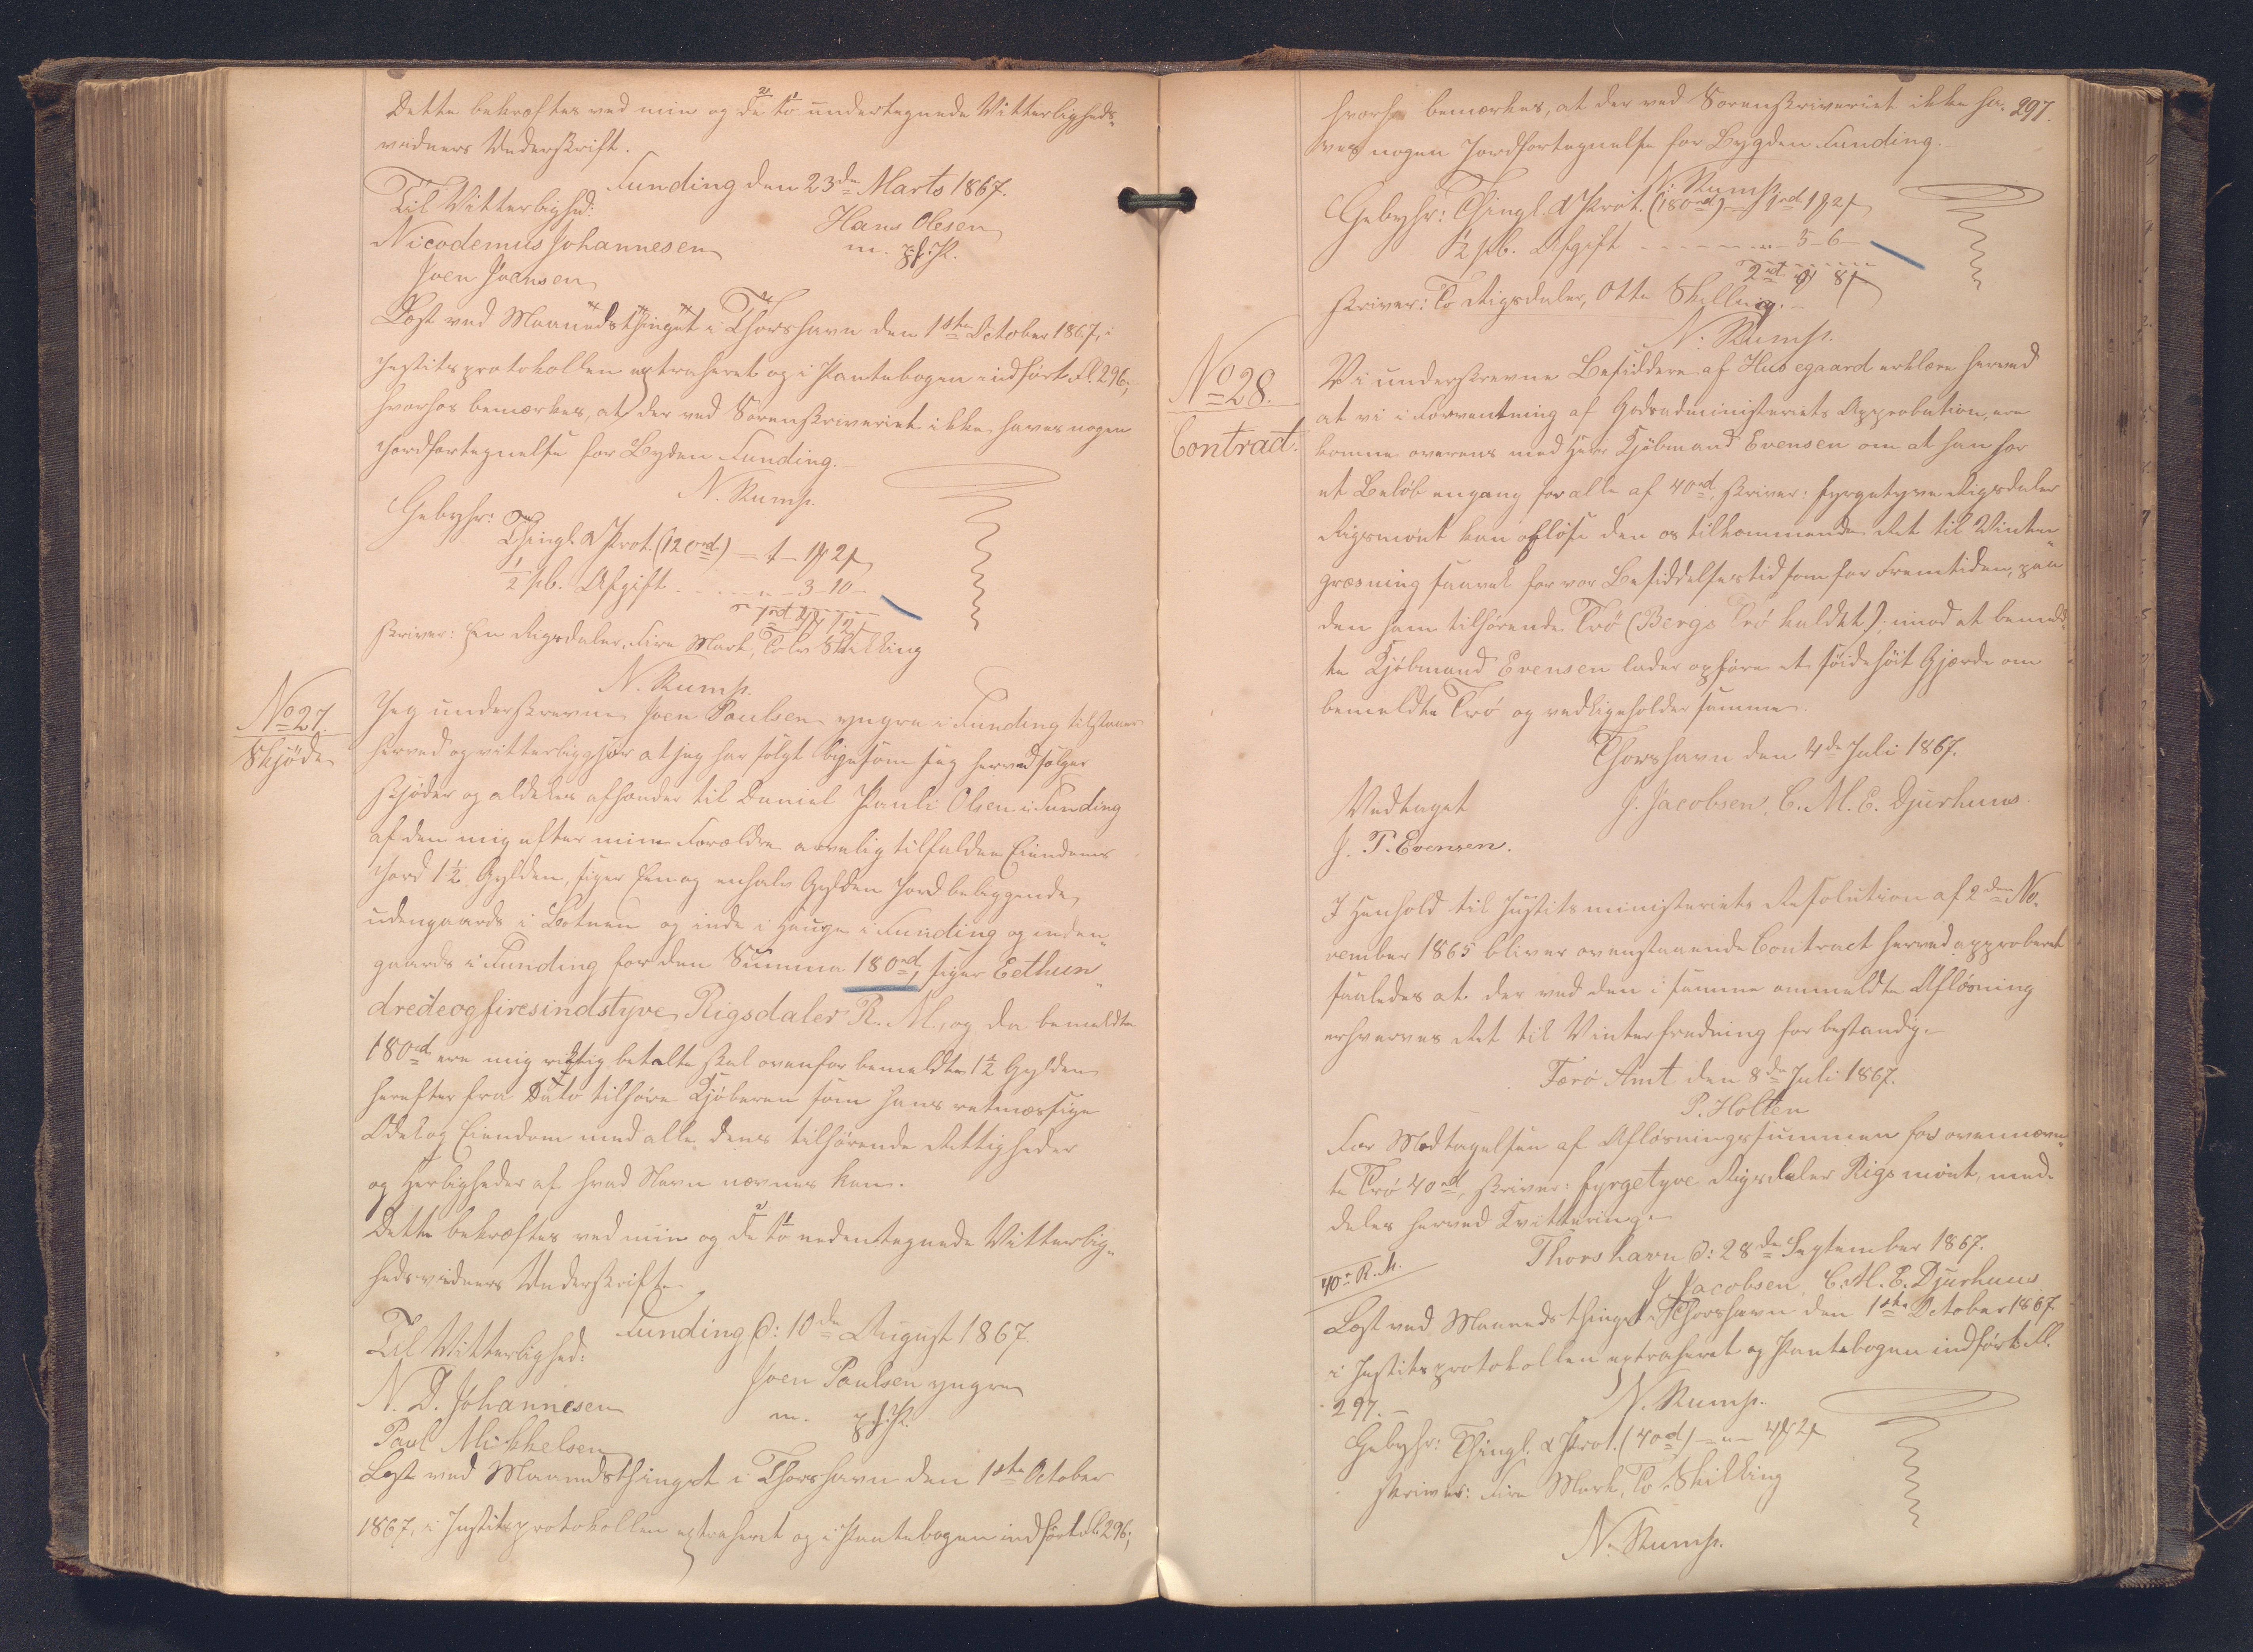 Dette bekræftes ved min og de to undertegnede Vitterligheds-
vidners Underskrift.
Funding den 23de Marts 1867.
Til Vitterlighed:
Hans Olesen
Nicodemus Johannesen
m. p. f. P.
Joen Joensen
Læst ved Maanedsthinget i Thorshavn den 1ste October 1867, i
Justitsprotokollen extraheret og i Pantebogen indført Fol. 296,
hvorhos bemærkes, at der ved Sorenskriveriet ikke haves nogen
Jordfortegnelse for Byden Funding.
N. Rump.
Gebyhr:
Thingl. & Prot. (120rd) — 1 - 1 ꝭ 2 ꝭ
½ pb. Afgift . . . . " - 3 - 10 -
1rd 4 ꝭ 12 ꝭ
skriver: Een Rigsdaler, Fire Mark, Tolv Skilling
N. Rump.
No 27.
Skjøde
Jeg underskrevne Joen Poulsen yngre i Funding tilstaaer
herved og vitterliggjør at jeg har solgt ligesom jeg herved sælger
skjøder og aldeles afhænder til Daniel Pauli Olsen i Funding
af den mig efter mine Forældre arvelig tilfaldne Eiendoms
Jord 1½ Gylden, siger Een og enhalv Gylden Jord beliggende
udengaards i Botnen og inde i Hauge i Funding og inden-
gaards i Funding for den Summa 180rd, siger Eethun-
dredeogfiresindstyve Rigsdaler R. M., og da bemeldte
180rd ere mig rigtig betalte skal ovenfor bemeldte 1½ Gylden
herefter fra Dato tilhøre Kjøberen som hans retmæssige
Odel og Eiendom med alle dens tilhørende Rettigheder
og Herligheder af hvad Navn nævnes kan.
Dette bekræftes ved min og de to nedentegnede Vitterlig-
hedsvidners Underskrift.
Funding d: 10de August 1867.
Til Vitterlighed:
Joen Paulsen yngre
N. D. Johannesen
m. p. f. P.
Paul Mikkelsen
Læst ved Maanedsthinget i Thorshavn den 1ste October
1867, i Justitsprotokollen extraheret og i Pantebogen indført Fol. 296,
297.
hvorhos bemærkes, at der ved Sorenskriveriet ikke ha-
ves nogen Jordfortegnelse for Bygden Funding.
N. Rump
Gebyhr: Thingl. & Prot. (180rd) — 1rd 1 ꝭ 2 ꝭ
½ pb. Afgift - - - - " - 5 - 6 -
2rd " ꝭ 8 ꝭ
skriver: To Rigsdaler, Otte Skilling.
N. Rump.
No 28.
Contract.
Vi underskrevne Besiddere af Husegaard erklære herved
at vi i Forventning af Godsadministeriets Approbation, ere
komne overens med Herr Kjøbmand Evensen om at han for
et Beløb engang for alle af 40rd, skriver: fyrgetyve Rigsdaler
Rigsmønt kan afløse den os tilkommende Ret til Vinter-
græsning saavel for vor Besiddelsestid som for Fremtiden, paa
den ham tilhørende Trø (Bergs Trø kaldet), imod at bemeld-
te Kjøbmand Evensen lader opføre et søidehøit Gjærde om
bemeldte Trø og vedligeholder samme.
Thorshavn den 4de Juli 1867.
Vedtaget
J. Jacobsen, C. M. E. Djurhuus.
J. P. Evensen.
I Henhold til Justitsministeriets Resolution af 2den No-
vember 1865 bliver ovenstaaende Contract herved approberet
saaledes at der ved den i samme ommeldte Afløsning
erhverves Ret til Vinterfredning for bestandig.
Færø Amt den 8de Juli 1867.
P. Holten
For Modtagelsen af Afløsningssummen for ovennævn-
te Trø 40rd, skriver: fyrgetyve Rigsdaler Rigsmønt, med-
deles herved Kvittering.
Thorshavn d: 28de September 1867.
40rd R. M.
J. Jacobsen, C. M. E. Djurhuus
Læst ved Maanedsthinget i Thorshavn den 1ste October 1867
i Justitsprotokollen extraheret og Pantebogen indført Fol.
297.
N. Rump.
Gebyhr: Thingl. & Prot. (40rd) — " - 4 ꝭ 2 ꝭ
skriver: Fire Mark, To Skilling
N. Rump.